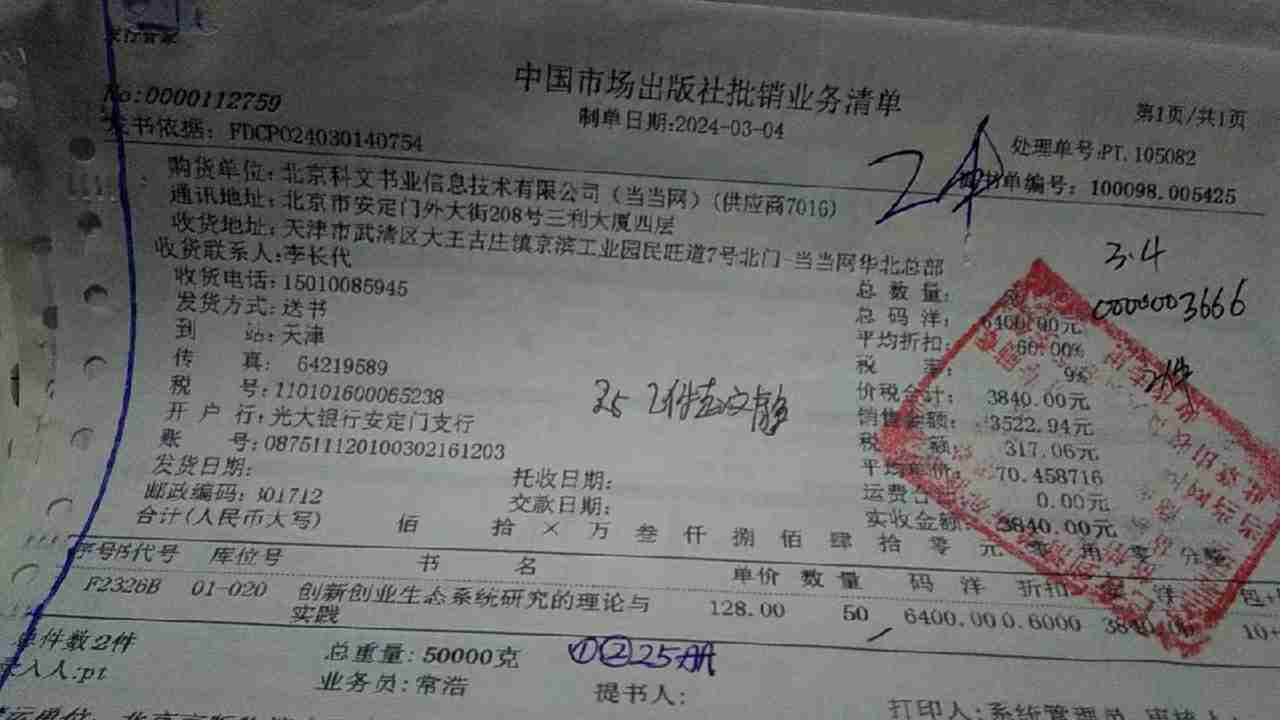 发行管家
中国市场出版社批销业务清单
No:0000112759
制单日期:2024-03-04
第1页/共1页
发书依据: FDCP024030140754
处理单号:PT.105082
单编号: 100098.005425
2件
购货单位: 北京科文书业信息技术有限公司（当当网）(供应商7016)
通讯地址: 北京市安定门外大街208号三利大厦四层
收货地址: 天津市武清区大王古庄镇京滨工业园民旺道7号北门-当当网华北总部
收货联系人: 李长代
收货电话: 15010085945
发货方式: 送书
到 站: 天津
传 真: 64219589
税 号: 110101600065238
开户行: 光大银行安定门支行
账 号: 087511120100302161203
发货日期:
托收日期:
邮政编码: 301712
交款日期:
3.4
0000003666
2件
总数量:
总码洋: 6400.00元
平均折扣: 60.00%
税 率: 9%
价税合计: 3840.00元
销售金额: 3522.94元
税 额: 317.06元
平均 价: 70.458716
运费 0.00元
实收金额: 3840.00元
25 2件
合计(人民币大写) 佰 拾 × 万 叁 仟 捌 佰 肆 拾 零 元 零 角 零 分整
序号/代号 库位号 书 名 单价 数量 码 洋 折扣 实 洋
F2326B 01-020 创新创业生态系统研究的理论与 128.00 50 6400.00 0.6000 3840.00
实践
总件数2件
总重量: 50000克
①②25册
录入人:pt
业务员: 常浩
提书人:
打印人:系统管理员